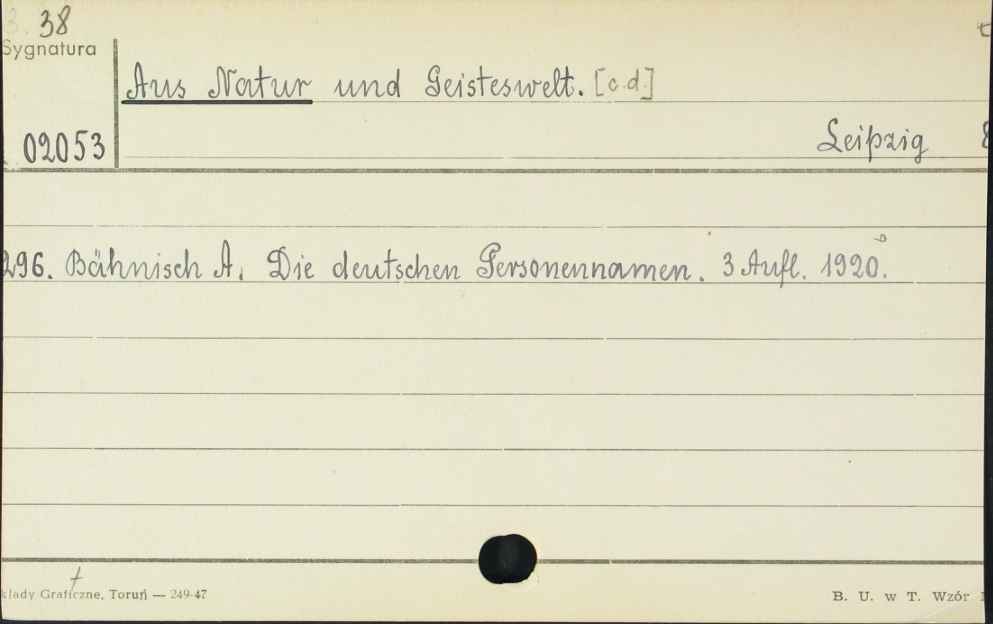 38
Sygnatura
Aus Natur und Geisteswelt. [c.d.]
02053
Leipzig 8
296. Bähnisch A. Die deutschen Personennamen. 3 Aufl. 1920.
kłady Graficzne, Toruń — 249-47
B. U. w T. Wzór